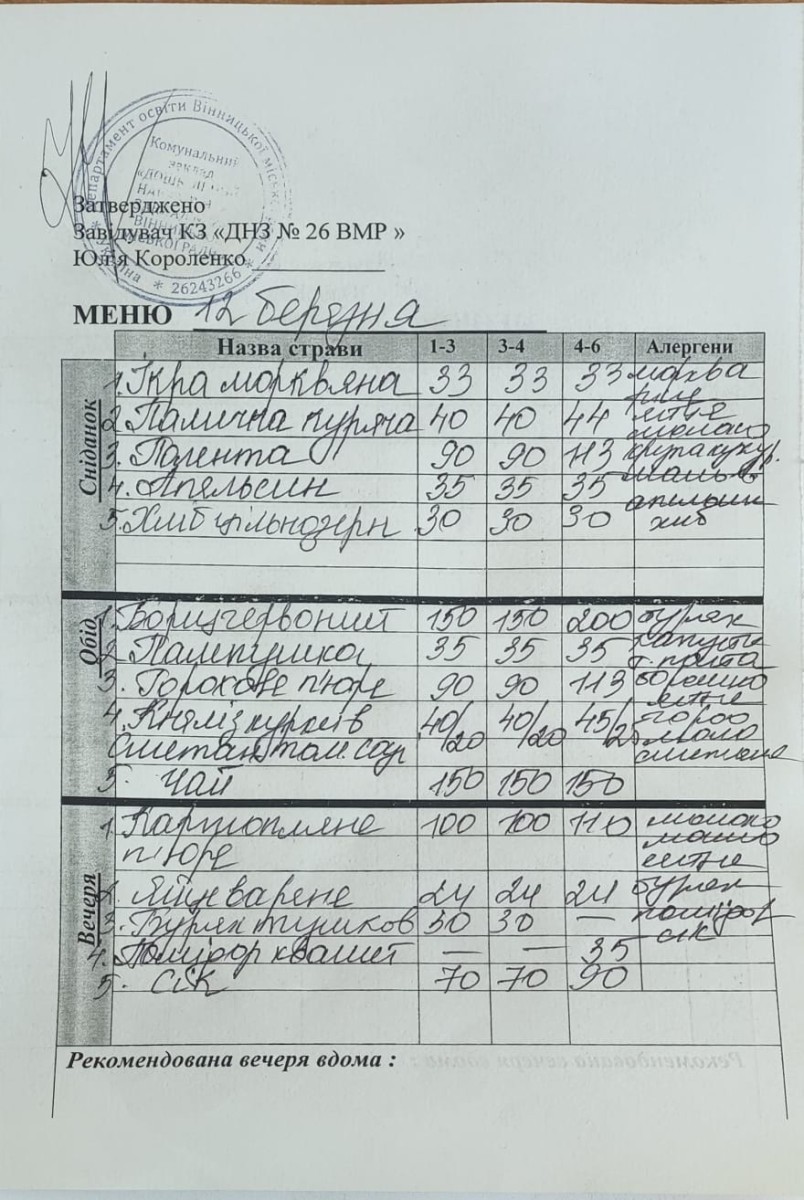 Департамент освіти Вінницької міської
Комунальний
заклад
26243266
Україна
Затверджено
Завідувач КЗ «ДНЗ № 26 ВМР »
Юлія Короленко
МЕНЮ 12 березня
Назва страви 1-3 3-4 4-6 Алергени
Сніданок
1. Ікра морквяна 33 33 33 морква
2. Паличка куряча 40 40 44 молоко
3. Полента 90 90 113 крупа кукур.
4. Апельсин 35 35 35 апельсин
5. Хліб цільнозерн 30 30 30 хліб
Обід
1. Борщ червоний 150 150 200 буряк
2. Пампушка 35 35 35 капуста
т. паста
3. Горохове п'юре 90 90 113 борошно
яйце
4. Кнеліз курків 40/20 40/20 45/2 горох
Сметан том. соус сметана
5. Чай 150 150 150
Вечеря
1. Картопляне 100 100 110 молоко
п'юре масло
яйце
2. Яйце варене 24 24 24 буряк
3. Буряк тушков 30 30 — помідор
сік
4. Помідор квашет — — 35
5. Сік 70 70 90
Рекомендована вечеря вдома :